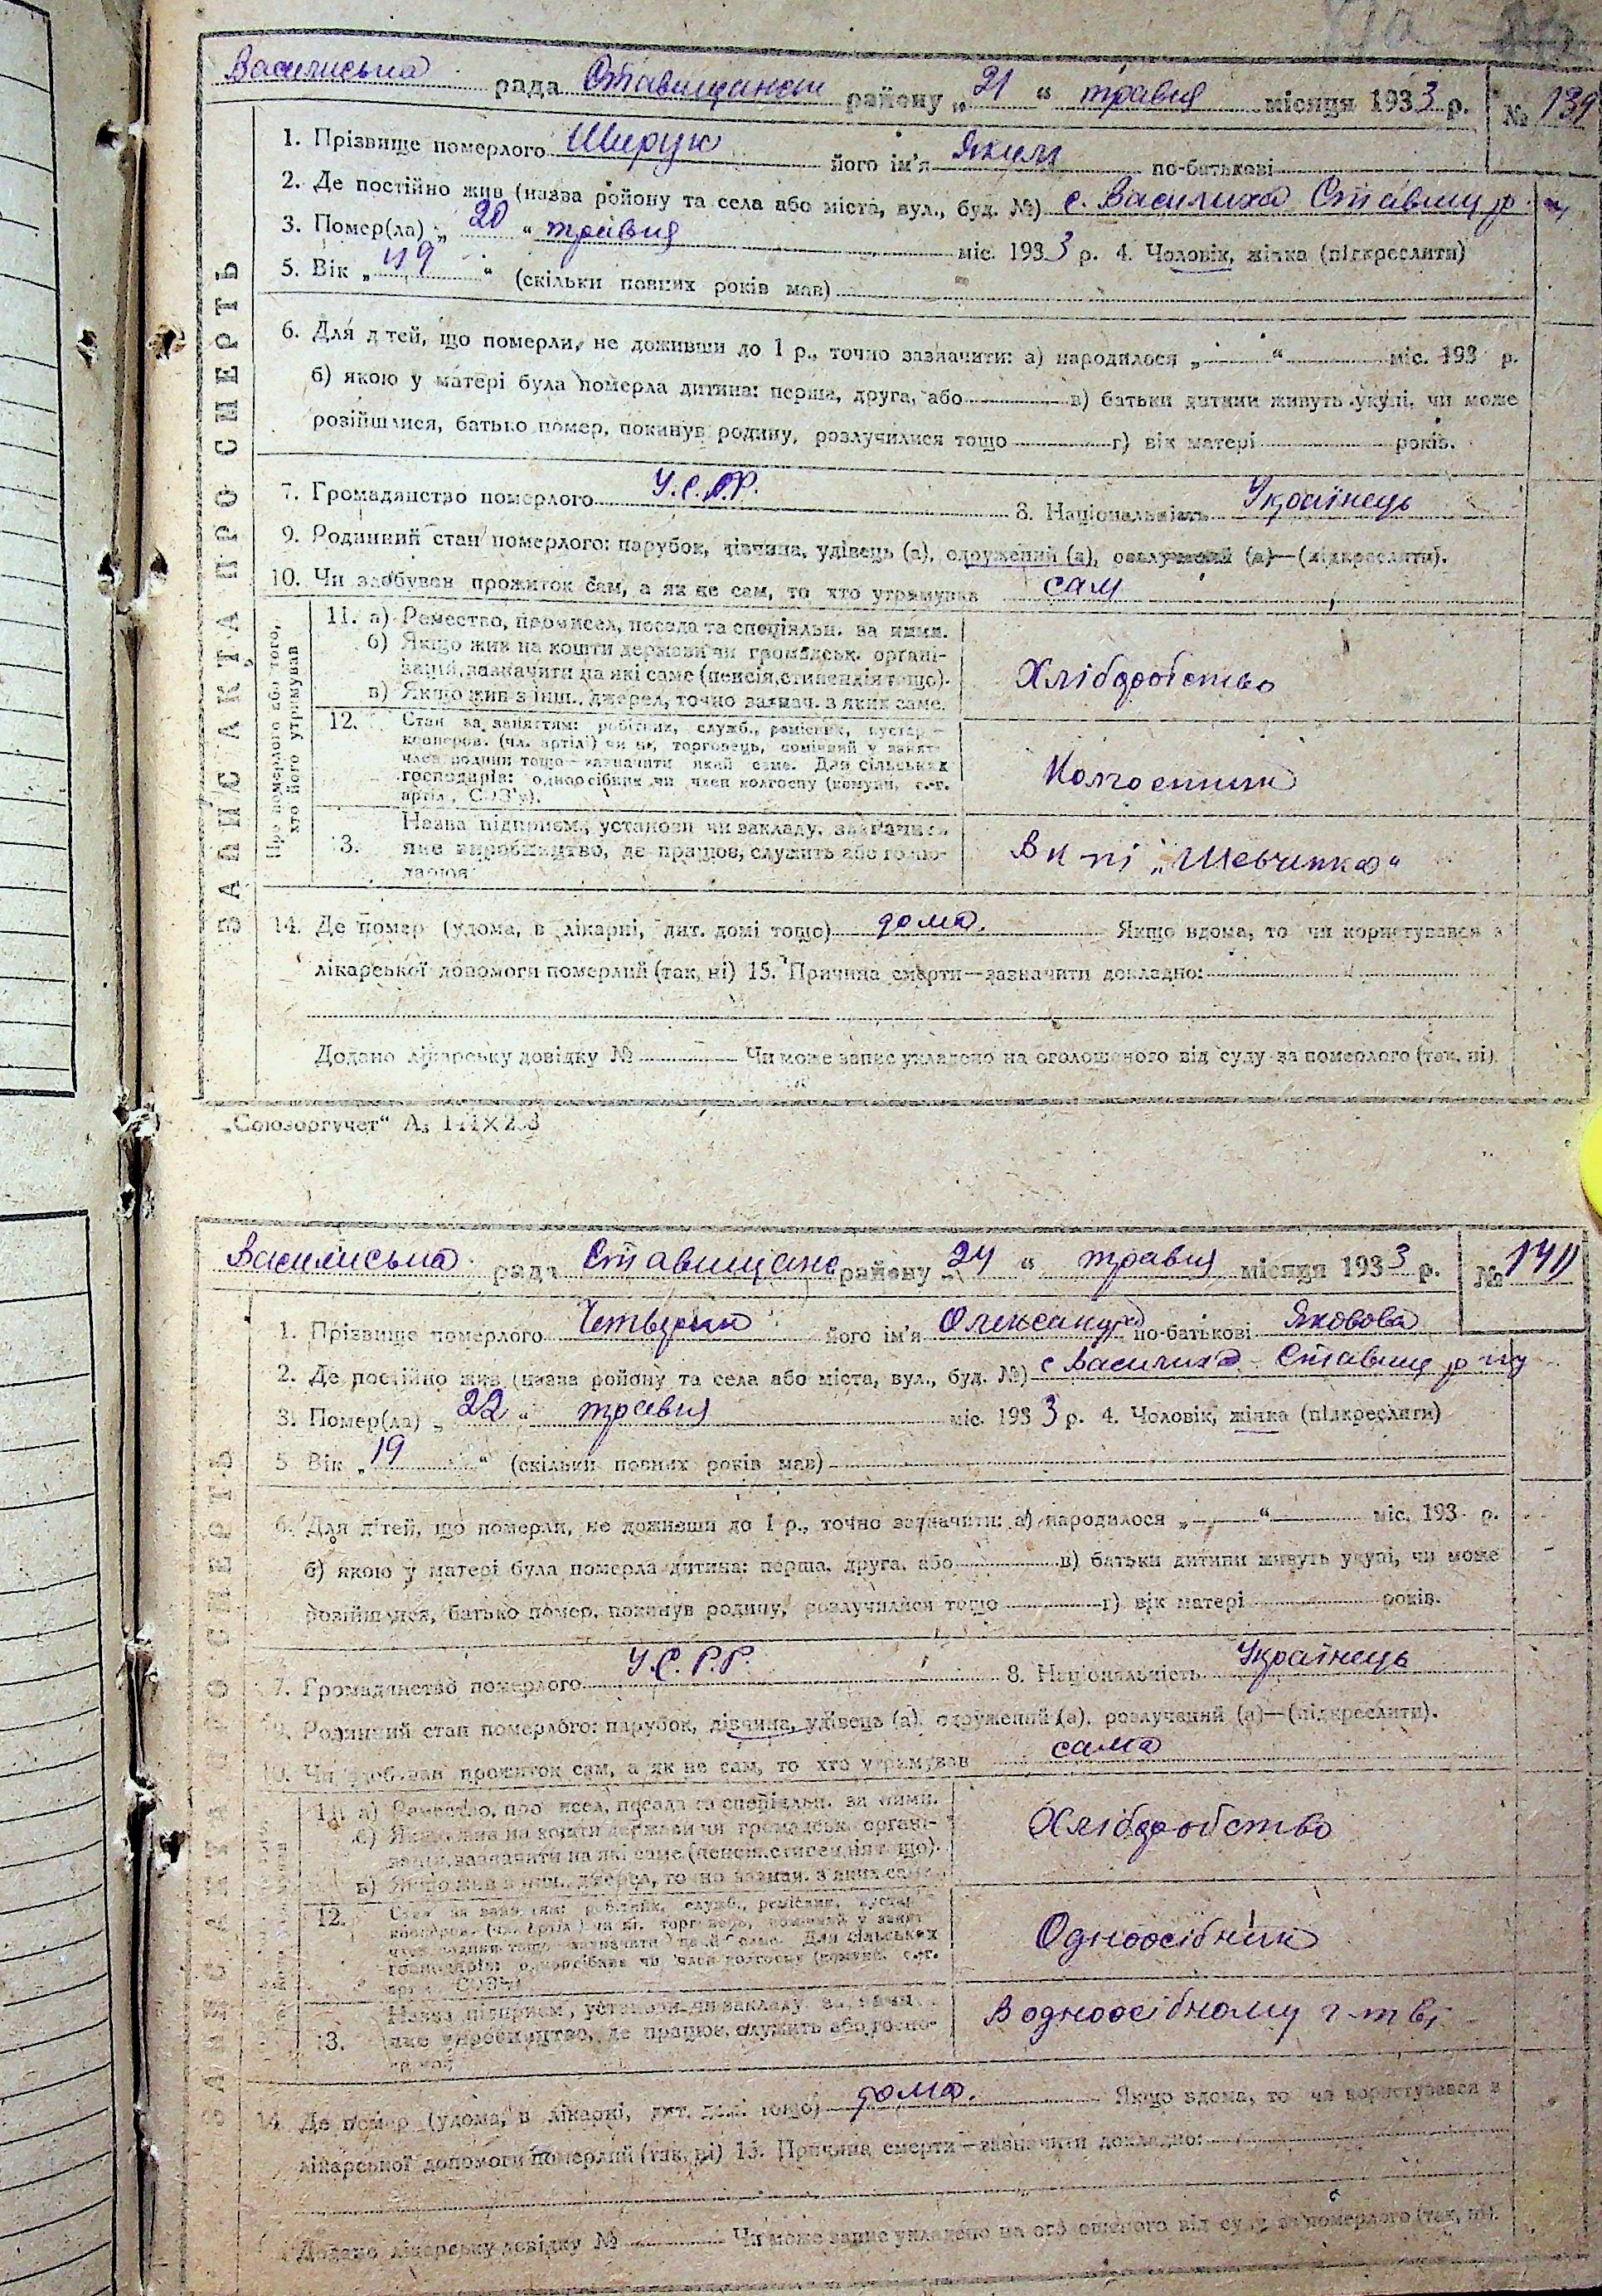 Василиська рада Ставищанськ району „21“ травня місяця 1933 р. № 139
1. Прізвище померлого Ширук його ім'я Яким по-батькові
2. Де постійно жив (назва району та села або міста, вул., буд. №) с. Василиха Ставищ р
3. Помер(ла) „20“ травня міс. 1933 р. 4. Чоловік, жінка (підкреслити)
5. Вік „49“ (скільки повних років мав)
ЗАПИС АКТА ПРО СМЕРТЬ
6. Для дітей, що померли, не доживши до 1 р., точно зазначити: а) народилося „ “ міс. 193 р.
б) якою у матері була померла дитина: перша, друга, або в) батьки дитини живуть укупі, чи може
розійшлися, батько помер, покинув родину, розлучилися тощо г) вік матері років.
7. Громадянство померлого У.С.Р.Р. 8. Національність Українець
9. Родинний стан померлого: парубок, дівчина, удівець (а), одружений (а), розлучений (а)—(підкреслити).
10. Чи здобував прожиток сам, а як не сам, то хто утримував сам
Про померлого або того,
хто його утримував
11. а) Ремество, промисел, посада та спеціяльн. за ними.
б) Якщо жив на кошти держави чи громадськ. органі-
зацій, зазначити на які саме (пенсія, стипендія тощо).
в) Якщо жив з інш. джерел, точно зазнач. з яких саме.
Хліборобство
12. Стан за заняттям: робітник, служб., ремісник, кустар-
кооперов. (чл. артілі) чи ні, торговець, помічний у занят.
член родини тощо—зазначити який саме. Для сільських
господарів: одноосібник чи член колгоспу (комуни, с.-г.
артілі, СОЗ'у).
Колгоспник
13. Назва підприєм., установи чи закладу, зазначити
яке виробництво, де працює, служить або госпо-
дарює
В к-пі „Шевченка“
14. Де помер (удома, в лікарні, дит. домі тощо) дома. Якщо вдома, то чи користувався з
лікарської допомоги померлий (так, ні) 15. Причина смерти—зазначити докладно:
Додано лікарську довідку № Чи може запис укладено на оголошеного від суду за померлого (так, ні).
„Союзоргучет“ А₅ 144×203
Василиська рада Ставищанс району „24“ травня місяця 1933 р. № 140
1. Прізвище померлого його ім'я Олександра по-батькові Яковова
2. Де постійно жив (назва району та села або міста, вул., буд. №) с Василиха Ставищ р ну
3. Помер(ла) „22“ травня міс. 1933 р. 4. Чоловік, жінка (підкреслити)
5 Вік „19“ (скільки повних років мав)
ЗАПИС АКТА ПРО СМЕРТЬ
6. Для дітей, що померли, не доживши до 1 р., точно зазначити: а) народилося „ “ міс. 193 р.
б) якою у матері була померла дитина: перша, друга, або в) батьки дитини живуть укупі, чи може
розійшлися, батько помер, покинув родину, розлучилися тощо г) вік матері років.
7. Громадянство померлого У.С.Р.Р. 8. Національність Українець
9. Родинний стан померлого: парубок, дівчина, удівець (а), одружений (а), розлучений (а)—(підкреслити).
10. Чи здобував прожиток сам, а як не сам, то хто утримував сама
11. а) Ремество, промисел, посада та спеціяльн. за ними.
б) Якщо жив на кошти держави чи громадськ. органі-
зацій, зазначити на які саме (пенсія, стипендія тощо).
в) Якщо жив з інш. джерел, точно зазнач. з яких саме.
Хліборобство
12. Стан за заняттям: робітник, служб., ремісник, кустар-
кооперов. (чл. артілі) чи ні, торговець, помічний у занят.
член родини тощо—зазначити який саме. Для сільських
господарів: одноосібник чи член колгоспу (комуни, с.-г.
артілі, СОЗ'у)
Одноосібник
13. Назва підприєм., установи чи закладу, зазначити
яке виробництво, де працює, служить або госпо-
дарює
В одноосібному г-тві
14. Де помер (удома, в лікарні, дит. домі тощо) дома. Якщо вдома, то чи користувався з
лікарської допомоги померлий (так, ні) 15. Причина смерти—зазначити докладно:
Додано лікарську довідку № Чи може запис укладено на оголошеного від суду за померлого (так, ні).